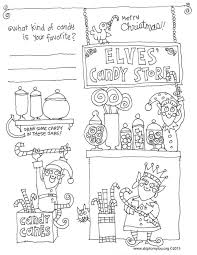 What kind of candy
is your favorite?
Merry
Christmas!!
ELVES'
CANDY STORE
DRAW SOME CANDY
IN THESE JARS!
candy
canes
www.skiptomylou.org ©2013